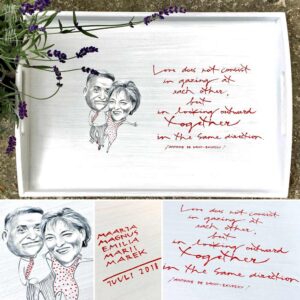 Love does not consist
in gazing at
each other,
but
in looking outward
Together
in the same direction
(ANTOINE DE SAINT-EXUPÉRY)
MAARJA
MAGNUS
EMILIA
MARII
MAREK
JUULI 2018
Love does not consist
in gazing at
each other,
but
in looking outward
Together
in the same direction
(ANTOINE DE SAINT-EXUPÉRY)